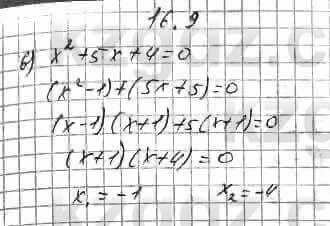 16.9
в) x² + 5x + 4 = 0
(x² - 1) + (5x + 5) = 0
(x - 1)(x + 1) + 5(x + 1) = 0
(x + 1)(x + 4) = 0
x₁ = -1 x₂ = -4